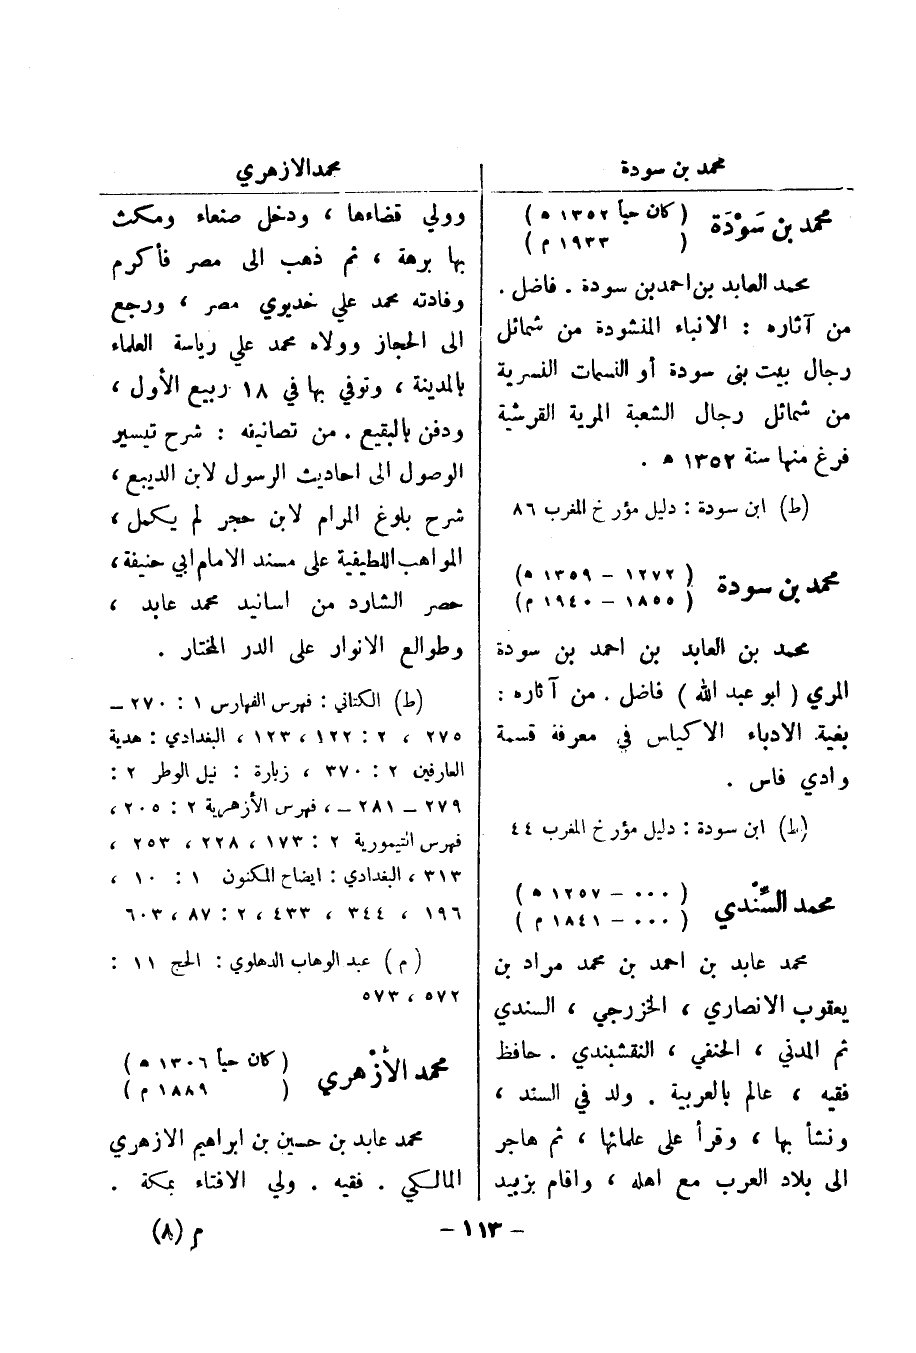 محمد بن سودة
محمد الازهري
محمد بن سَوْدَة
( كان حياً ١٣٥٢ ه )
( ١٩٣٣ م )
محمد العابد بن احمد بن سودة . فاضل .
من آثاره : الانباء المنشودة من شمائل
رجال بيت بنى سودة أو النسمات النسرية
من شمائل رجال الشعبة المرية القرشية
فرغ منها سنة ١٣٥٢ ه .
(ط) ابن سودة : دليل مؤرخ المغرب ٨٦
محمد بن سودة
( ١٢٧٢ – ١٣٥٩ ه )
( ١٨٥٥ – ١٩٤٠ م )
محمد بن العابد بن احمد بن سودة
المري ( ابو عبد الله ) فاضل . من آثاره :
بغية الادباء الاكياس في معرفة قسمة
وادي فاس .
(ط) ابن سودة : دليل مؤرخ المغرب ٤٤
محمد السِّنْدي
( ٠٠٠ – ١٢٥٧ ه )
( ٠٠٠ – ١٨٤١ م )
محمد عابد بن احمد بن محمد مراد بن
يعقوب الانصاري ، الخزرجي ، السندي
ثم المدني ، الحنفي ، النقشبندي . حافظ
فقيه ، عالم بالعربية . ولد في السند ،
ونشأ بها ، وقرأ على علمائها ، ثم هاجر
الى بلاد العرب مع اهله ، واقام بزبيد
وولي قضاءها ، ودخل صنعاء ومكث
بها برهة ، ثم ذهب الى مصر فأكرم
وفادته محمد علي خديوي مصر ، ورجع
الى الحجاز وولاه محمد علي رياسة العلماء
بالمدينة ، وتوفي بها في ١٨ ربيع الأول ،
ودفن بالبقيع . من تصانيفه : شرح تيسير
الوصول الى احاديث الرسول لابن الديبع ،
شرح بلوغ المرام لابن حجر لم يكمل ،
المواهب اللطيفية على مسند الامام ابي حنيفة ،
حصر الشارد من اسانيد محمد عابد ،
وطوالع الانوار على الدر المختار .
(ط) الكتاني : فهرس الفهارس ١ : ٢٧٠ –
٢٧٥ ، ٢ : ١٢٢ ، ١٢٣ ، البغدادي : هدية
العارفين ٢ : ٣٧٠ ، زبارة : نيل الوطر ٢ :
٢٧٩ – ٢٨١ – ، فهرس الأزهرية ٢ : ٢٠٥ ،
فهرس التيمورية ٢ : ١٧٣ ، ٢٢٨ ، ٢٥٣ ،
٣١٣ ، البغدادي : ايضاح المكنون ١ : ١٠ ،
١٩٦ ، ٣٤٤ ، ٤٣٣ ، ٢ : ٨٧ ، ٦٠٣
( م ) عبد الوهاب الدهلوي : الحج ١١ :
٥٧٢ ، ٥٧٣
محمد الأَزْهري
( كان حياً ١٣٠٦ ه )
( ١٨٨٩ م )
محمد عابد بن حسين بن ابراهيم الازهري
المالكي . فقيه . ولي الافتاء بمكة .
– ١١٣ –
م (٨)